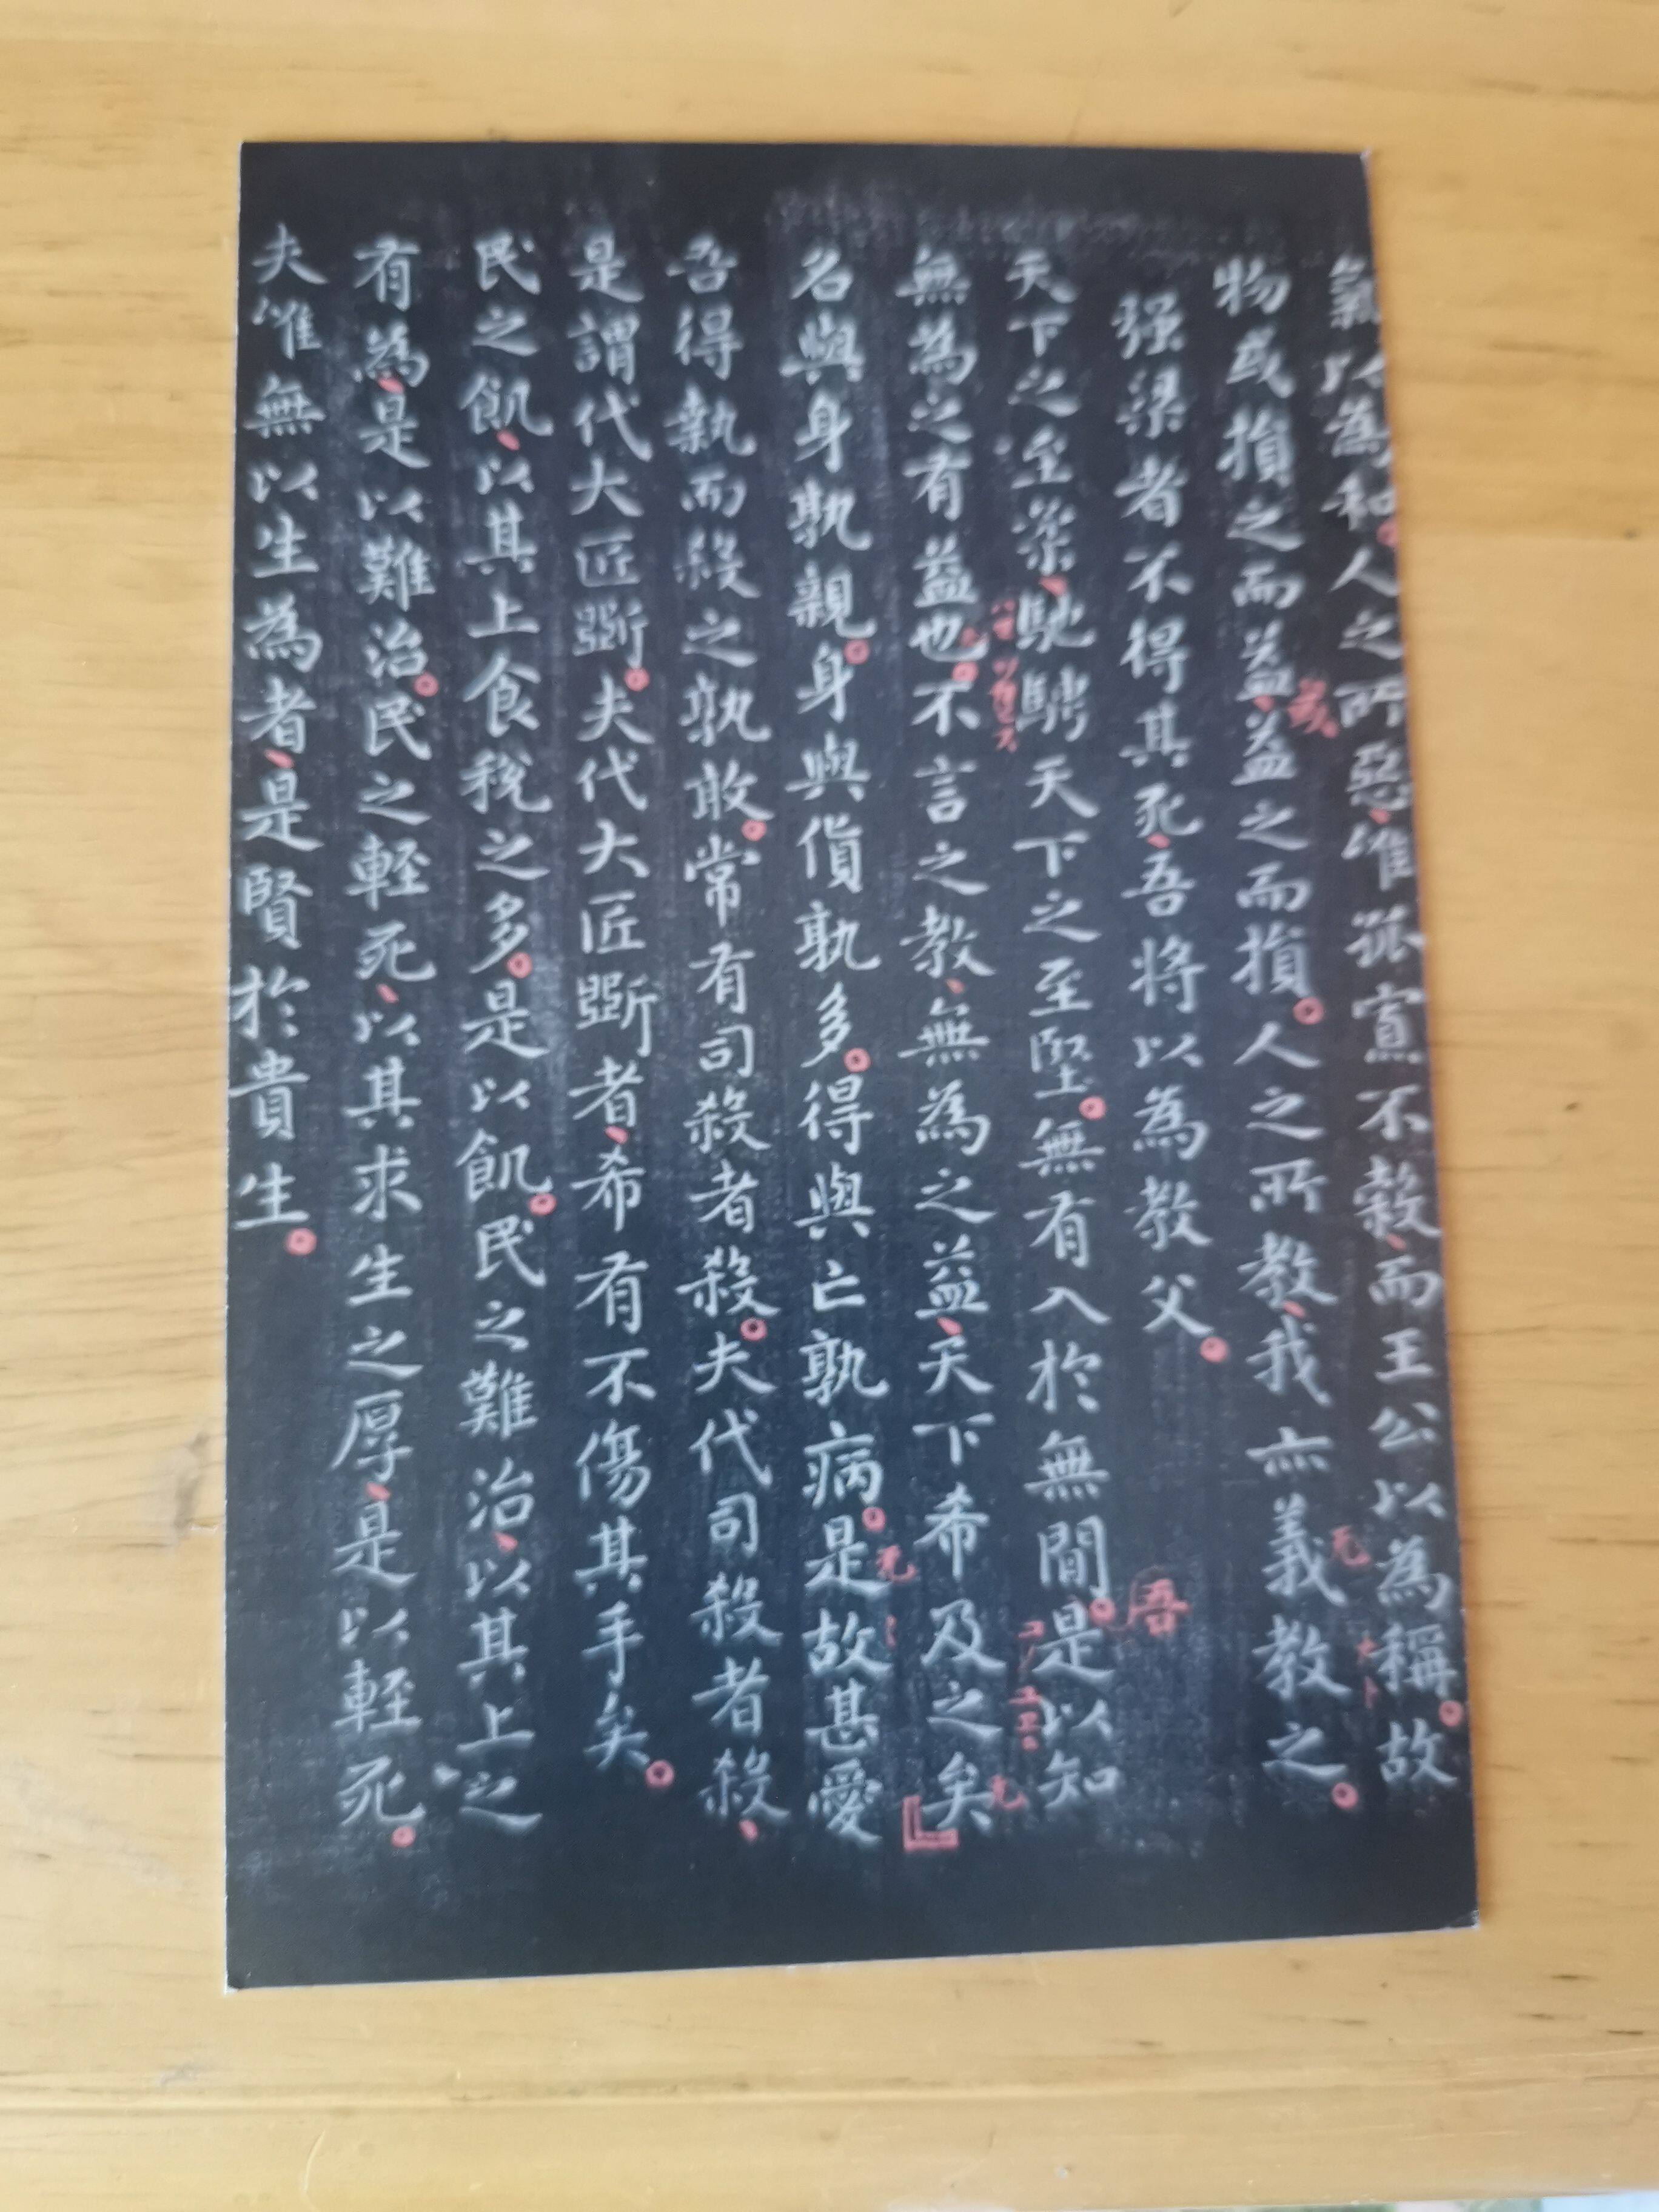 氣以為和。人之所惡、唯孤寡不穀、而王公以為稱。故
物或損之而益、益之而損。人之所教、我亦義教之。
强梁者不得其死、吾將以為教父。
天下之至柔、馳騁天下之至堅。無有入於無間。是以知
吾
無為之有益也。不言之教、無為之益、天下希及之矣
名與身孰親。身與貨孰多。得與亡孰病。是故甚愛
吾得執而殺之孰敢。常有司殺者殺。夫代司殺者殺、
是謂代大匠斲。夫代大匠斲者、希有不傷其手矣。
民之飢、以其上食稅之多。是以飢。民之難治、以其上之
有為、是以難治。民之輕死、以其求生之厚、是以輕死。
夫唯無以生為者、是賢於貴生。